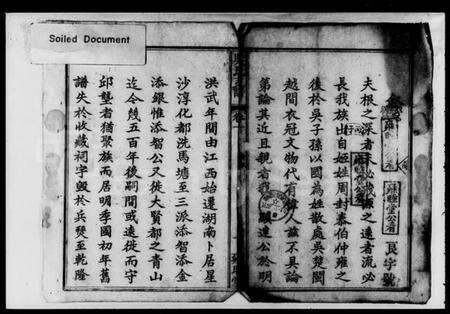 Soiled Document
夫根之深者末必茂源之遠者流必
長我族出自姬姓周封泰伯仲雍之
後於吳子孫以國為姓散處吳楚閩
越間衣冠文物代有偉人茲不具論
第論其近且親者我 顯達公於明
洪武年間由江西始遷湖南卜居星
沙淳化都洗馬塘至三派添智添金
添銀惟添智公又徙大賢都之青山
迄今幾五百年後嗣間或遠徙而守
邱壟者猶聚族而居明季國初年舊
譜失於收藏祠宇毀於兵燹至乾隆
艮字號